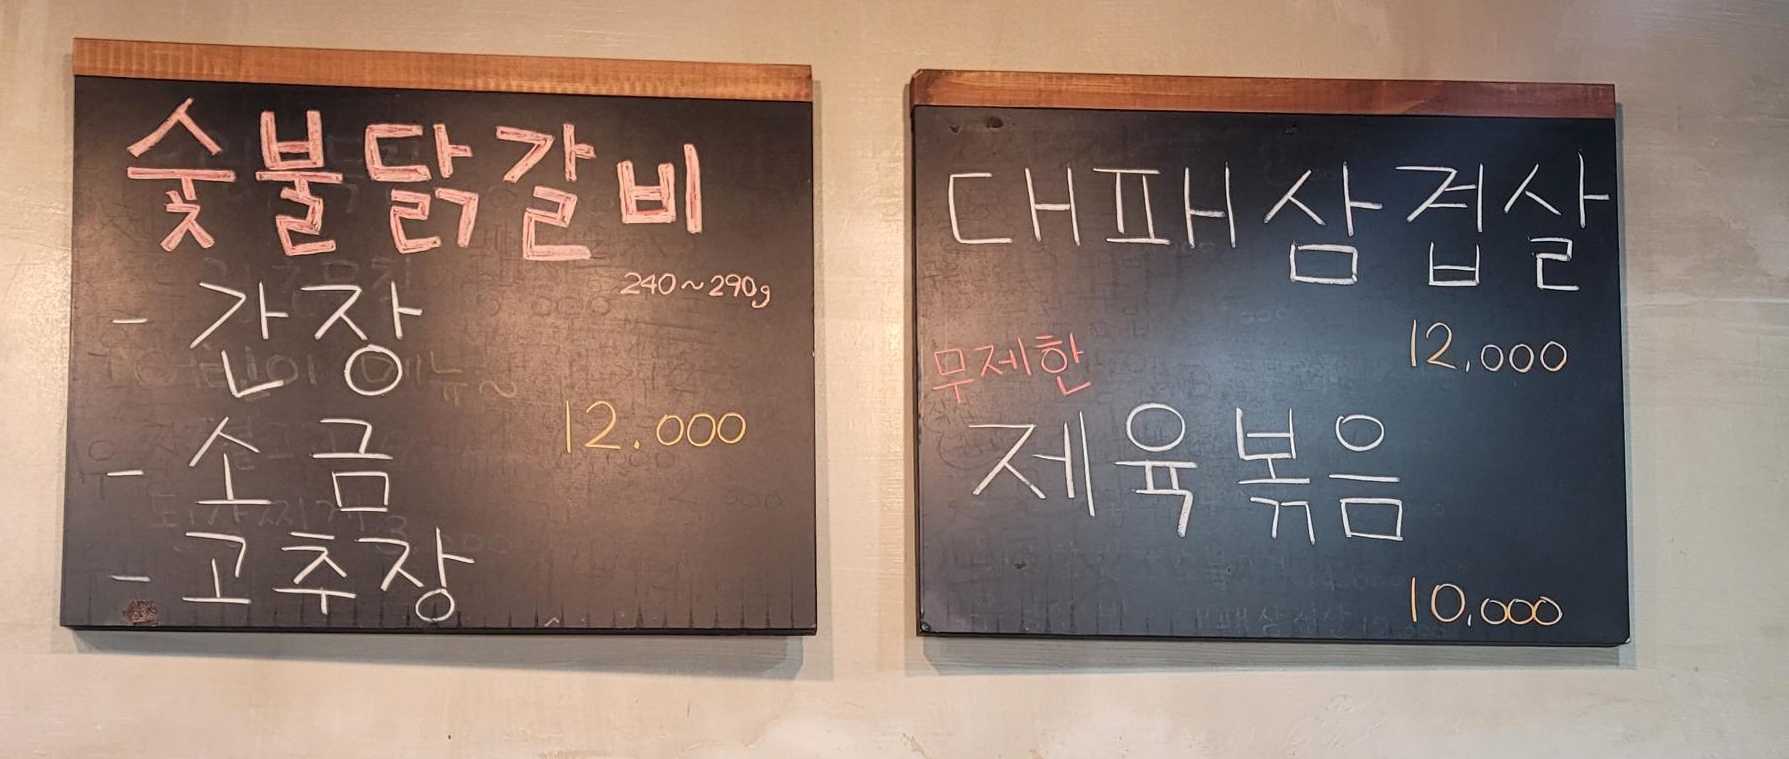 숯불닭갈비
240~290g
- 간장
12.000
- 소금
- 고추장
대패삼겹살
12,000
무제한
제육볶음
10,000